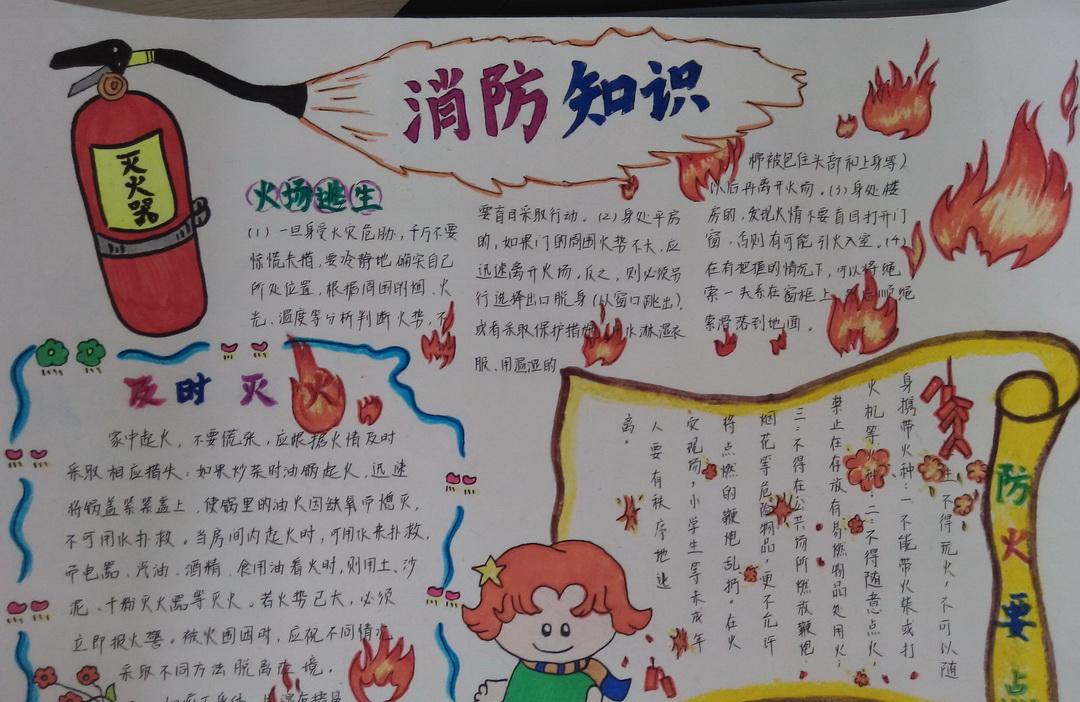 消防知识
灭火器
火场逃生
(1) 一旦身受火灾危胁,千万不要
惊慌失措,要冷静地确实自己
所处位置,根据周围的烟、火
光、温度等分析判断火势,不
要盲目采取行动。(2)身处平房
的,如果门的周围火势不大,应
迅速离开火场。反之,则必须另
行选择出口脱身(从窗口跳出),
或有采取保护措施 水淋湿衣
服、用温湿的
棉被包住头部和上身等)
以后再离开火场。(3)身处楼
房的,发现火情不要盲目打开门
窗,否则有可能引火入室。(4)
在有把握的情况下,可以将绳
索一头系在窗框上 顺绳
索滑落到地面。
及时灭火
家中起火,不要慌张,应根据火情及时
采取相应措失:如果炒菜时油锅起火,迅速
将锅盖紧紧盖上,使锅里的油火因缺氧而熄灭,
不可用水扑救。当房间内起火时,可用水来扑救,
而电器、汽油、酒精、食用油着火时,则用土、沙
泥、干粉灭火器等灭火。若火势已大,必须
立即报火警。被火围困时,应视不同情况
采取不同方法脱离 境。
防火要点
生不得玩火,不可以随
身携带火种:一不能带火柴或打
火机等火种;二:不得随意点火,
禁止在存放有易燃物品处用火;
三:不得在公共场所燃放鞭炮
烟花等危险物品,更不允许
将点燃的鞭炮乱扔。在火
灾现场,小学生等未成年
人要有秩序地逃
离。